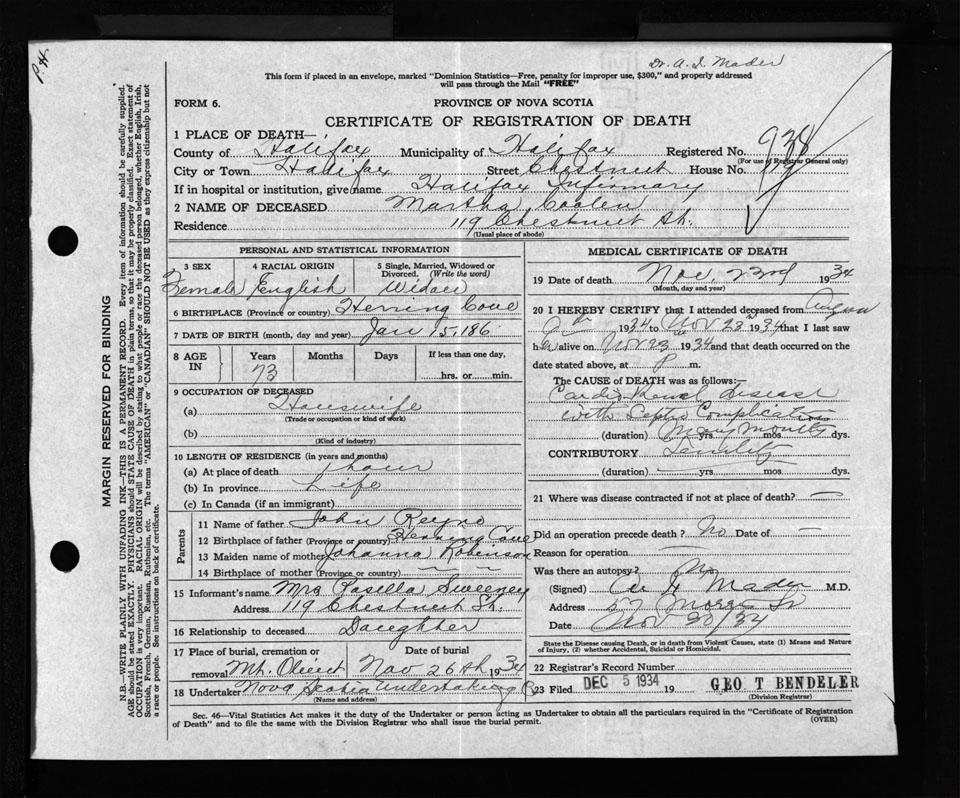 P.H.
Dr. A. I. Mader
This form if placed in an envelope, marked "Dominion Statistics—Free, penalty for improper use, $300," and properly addressed
will pass through the Mail "FREE"
FORM 6.
PROVINCE OF NOVA SCOTIA
CERTIFICATE OF REGISTRATION OF DEATH
1 PLACE OF DEATH—
County of Halifax Municipality of Halifax Registered No. 938
(For use of Registrar General only)
City or Town Halifax Street Chestnut House No. 119
If in hospital or institution, give name Halifax Infirmary
2 NAME OF DECEASED Martha Coolen
Residence 119 Chestnut St.
(Usual place of abode)
MARGIN RESERVED FOR BINDING
N.B.—WRITE PLAINLY WITH UNFADING INK—THIS IS A PERMANENT RECORD. Every item of information should be carefully supplied.
AGE should be stated EXACTLY. PHYSICIANS should STATE CAUSE OF DEATH in plain terms, so that it may be properly classified. Exact statement of
OCCUPATION is very important. RACIAL ORIGIN will be described by stating to what people or race the deceased person belonged, whether English, Irish,
Scottish, French, German, Russian, Ruthenian, etc. The terms "AMERICAN" or "CANADIAN" SHOULD NOT BE USED as they express citizenship but not
a race or people. See instructions on back of certificate.
PERSONAL AND STATISTICAL INFORMATION
3 SEX
Female
4 RACIAL ORIGIN
English
5 Single, Married, Widowed or
Divorced. (Write the word)
Widow
6 BIRTHPLACE (Province or country) Herring Cove
7 DATE OF BIRTH (month, day and year) Jan 15, 186
8 AGE
IN
Years
73
Months
Days
If less than one day,
hrs. or min.
9 OCCUPATION OF DECEASED
(a) Housewife
(Trade or occupation or kind of work)
(b)
(Kind of industry)
10 LENGTH OF RESIDENCE (in years and months)
(a) At place of death 1 hour
(b) In province Life
(c) In Canada (if an immigrant)
Parents
11 Name of father John Reyno
12 Birthplace of father (Province or country) Herring Cove
13 Maiden name of mother Johanna Robinson
14 Birthplace of mother (Province or country) —
15 Informant's name Mrs Sweeney
Address 119 Chestnut St.
16 Relationship to deceased Daughter
17 Place of burial, cremation or
removal Mt. Olivet
Date of burial
Nov 26th 1934
18 Undertaker Nova Scotia Undertaking Co
(Name and address)
MEDICAL CERTIFICATE OF DEATH
19 Date of death Nov 23rd 1934
(Month, day and year)
20 I HEREBY CERTIFY that I attended deceased from
1934 to Nov 23 1934 that I last saw
h alive on Nov 23 1934 and that death occurred on the
date stated above, at P m.
The CAUSE OF DEATH was as follows:—
Cardio Renal disease
with Septic Complication
(duration) Many yrs. Months mos. dys.
CONTRIBUTORY Senility
(duration) yrs. mos. dys.
21 Where was disease contracted if not at place of death? —
Did an operation precede death? No Date of —
Reason for operation —
Was there an autopsy? No
(Signed) Mader M.D.
Address 57 Morris St
Date Nov 30/34
State the Disease causing Death, or in death from Violent Causes, state (1) Means and Nature
of Injury, (2) whether Accidental, Suicidal or Homicidal.
22 Registrar's Record Number
23 Filed DEC 5 1934 19 GEO T BENDELER
(Division Registrar)
Sec. 46—Vital Statistics Act makes it the duty of the Undertaker or person acting as Undertaker to obtain all the particulars required in the "Certificate of Registration
of Death" and to file the same with the Division Registrar who shall issue the burial permit.
(OVER)